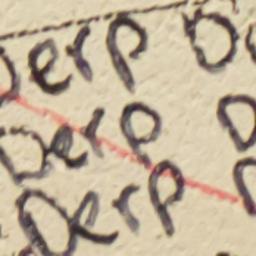 Derp D
Derp D
Derp D